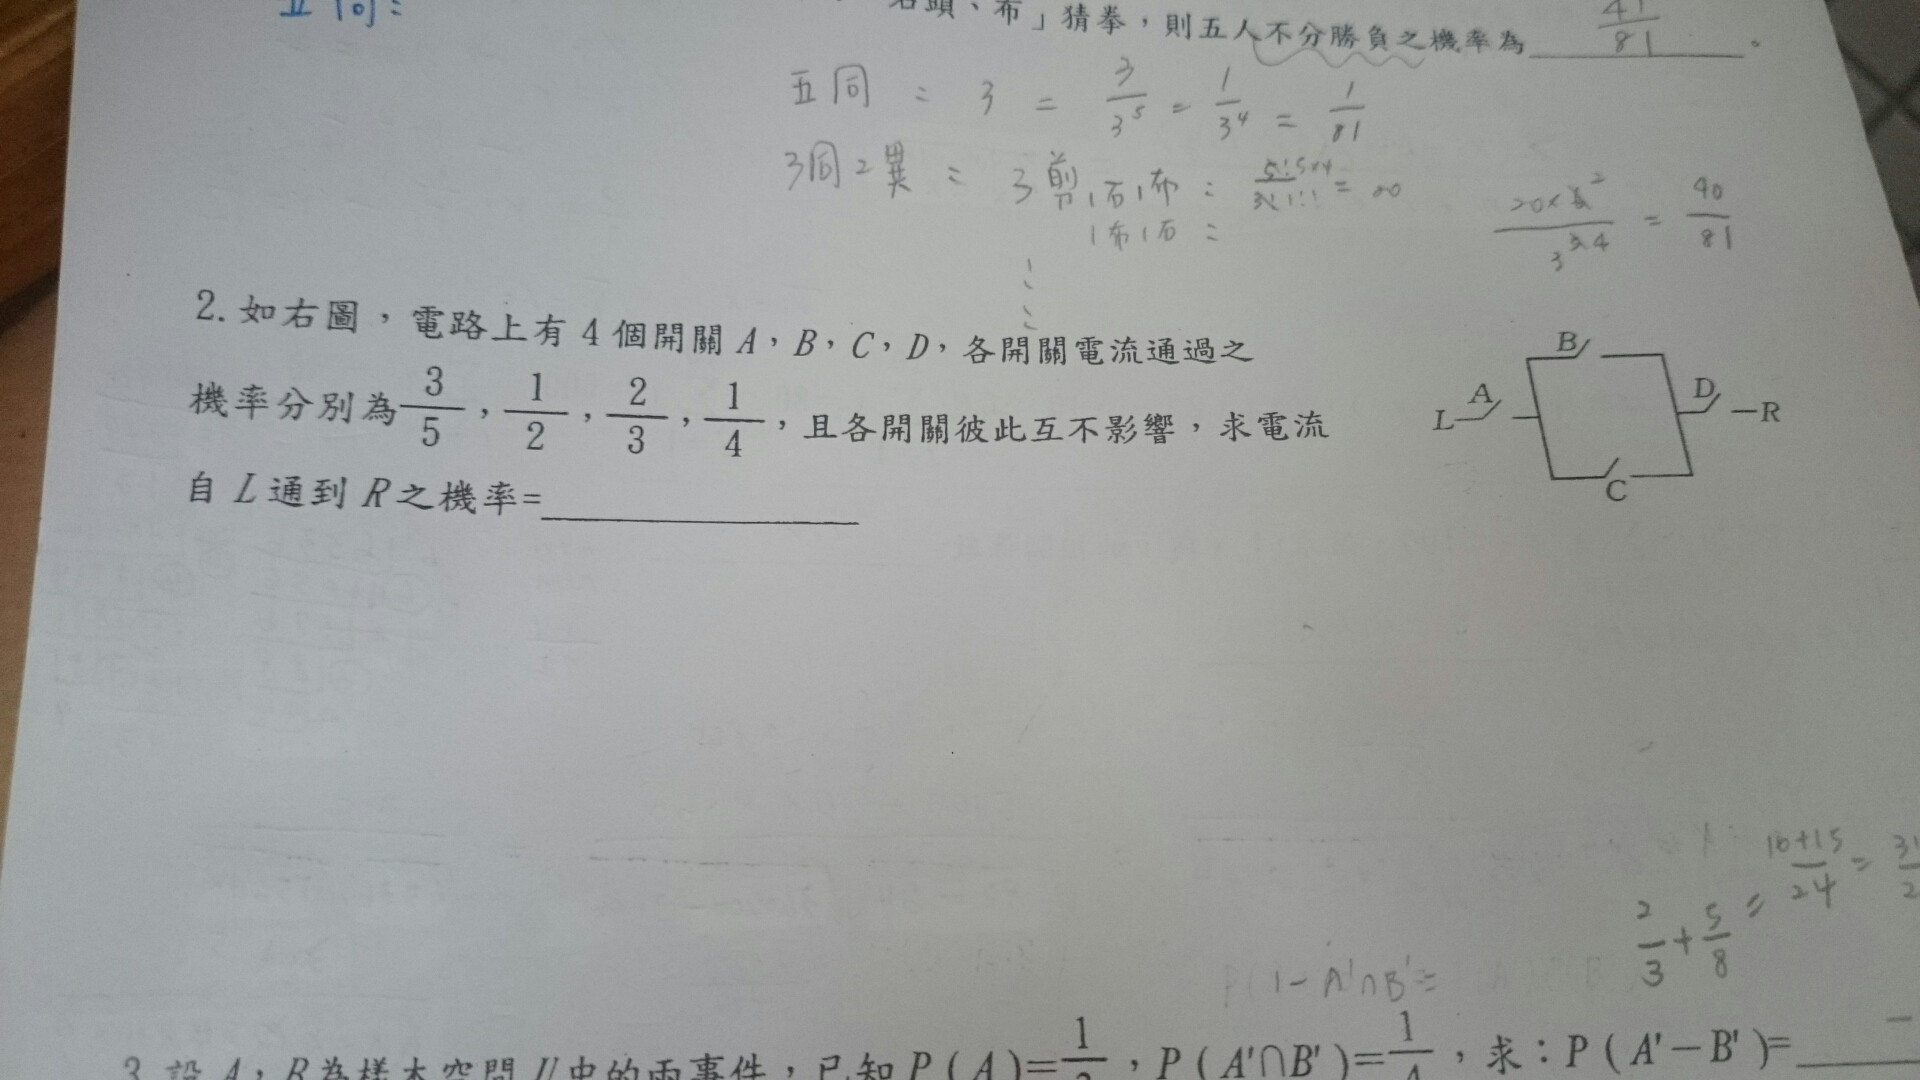 五同:
石頭、布」猜拳,則五人不分勝負之機率為 41/81 。
五同 : 3 = 3/3^5 = 1/3^4 = 1/81
3同2異 : 3剪1石1布 : = 20
1布1石 :
= 40/81
2. 如右圖,電路上有 4 個開關 A,B,C,D,各開關電流通過之
機率分別為 3/5 , 1/2 , 2/3 , 1/4 ,且各開關彼此互不影響,求電流
自 L 通到 R 之機率=
B
A
D
L
R
C
16+15/24 =
2/3 + 5/8 =
1 - A'∩B' =
3. 設 A,B 為樣本空間 U 中的兩事件,已知 P ( A ) = 1/ , P ( A'∩B' ) = 1/4 ,求:P ( A' - B' ) =